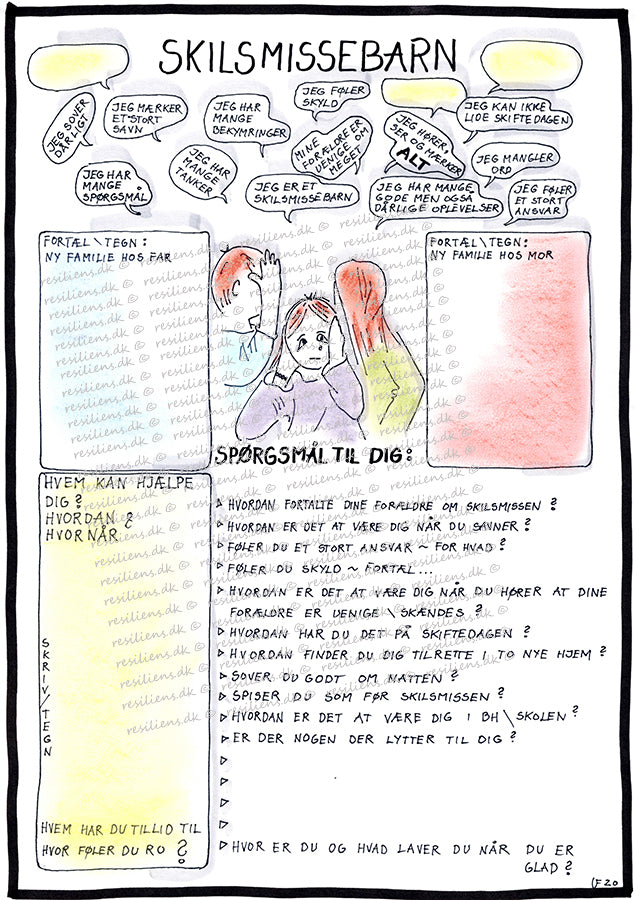 SKILSMISSEBARN
JEG SOVER
DÅRLIGT
JEG MÆRKER
ET STORT
SAVN
JEG HAR
MANGE
BEKYMRINGER
JEG FØLER
SKYLD
MINE
FORÆLDRE ER
UENIGE OM
MEGET
JEG HØRER,
SER OG MÆRKER
ALT
JEG KAN IKKE
LIDE SKIFTEDAGEN
JEG MANGLER
ORD
JEG HAR
MANGE
SPØRGSMÅL
JEG HAR
MANGE
TANKER
JEG ER ET
SKILSMISSEBARN
JEG HAR MANGE
GODE MEN OGSÅ
DÅRLIGE OPLEVELSER
JEG FØLER
ET STORT
ANSVAR
FORTÆL\TEGN:
NY FAMILIE HOS FAR
FORTÆL\TEGN:
NY FAMILIE HOS MOR
resiliens.dk ©
HVEM KAN HJÆLPE
DIG?
HVORDAN?
HVORNÅR
SKRIV/TEGN
HVEM HAR DU TILLID TIL
HVOR FØLER DU RO?
SPØRGSMÅL TIL DIG:
▷ HVORDAN FORTALTE DINE FORÆLDRE OM SKILSMISSEN?
▷ HVORDAN ER DET AT VÆRE DIG NÅR DU SAVNER?
▷ FØLER DU ET STORT ANSVAR ~ FOR HVAD?
▷ FØLER DU SKYLD ~ FORTÆL...
▷ HVORDAN ER DET AT VÆRE DIG NÅR DU HØRER AT DINE
FORÆLDRE ER UENIGE \ SKÆNDES?
▷ HVORDAN HAR DU DET PÅ SKIFTEDAGEN?
▷ HVORDAN FINDER DU DIG TILRETTE I TO NYE HJEM?
▷ SOVER DU GODT OM NATTEN?
▷ SPISER DU SOM FØR SKILSMISSEN?
▷ HVORDAN ER DET AT VÆRE DIG I BH\SKOLEN?
▷ ER DER NOGEN DER LYTTER TIL DIG?
▷
▷
▷
▷
▷ HVOR ER DU OG HVAD LAVER DU NÅR DU ER
GLAD?